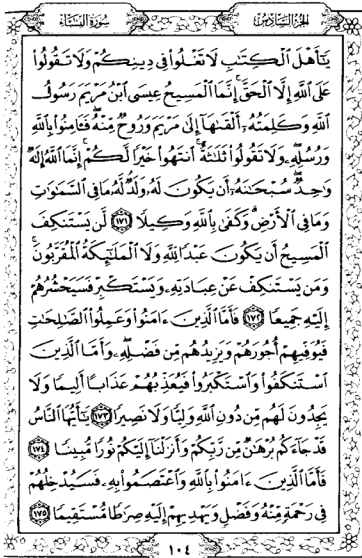 الجزء السادس سورة النساء
يَٰٓأَهۡلَ ٱلۡكِتَٰبِ لَا تَغۡلُواْ فِي دِينِكُمۡ وَلَا تَقُولُواْ
عَلَى ٱللَّهِ إِلَّا ٱلۡحَقَّۚ إِنَّمَا ٱلۡمَسِيحُ عِيسَى ٱبۡنُ مَرۡيَمَ رَسُولُ
ٱللَّهِ وَكَلِمَتُهُۥٓ أَلۡقَىٰهَآ إِلَىٰ مَرۡيَمَ وَرُوحٞ مِّنۡهُۖ فَـَٔامِنُواْ بِٱللَّهِ
وَرُسُلِهِۦۖ وَلَا تَقُولُواْ ثَلَٰثَةٌۚ ٱنتَهُواْ خَيۡرٗا لَّكُمۡۚ إِنَّمَا ٱللَّهُ إِلَٰهٞ
وَٰحِدٞۖ سُبۡحَٰنَهُۥٓ أَن يَكُونَ لَهُۥ وَلَدٞۘ لَّهُۥ مَا فِي ٱلسَّمَٰوَٰتِ
وَمَا فِي ٱلۡأَرۡضِۗ وَكَفَىٰ بِٱللَّهِ وَكِيلٗا ١٧١ لَّن يَسۡتَنكِفَ
ٱلۡمَسِيحُ أَن يَكُونَ عَبۡدٗا لِّلَّهِ وَلَا ٱلۡمَلَٰٓئِكَةُ ٱلۡمُقَرَّبُونَۚ
وَمَن يَسۡتَنكِفۡ عَنۡ عِبَادَتِهِۦ وَيَسۡتَكۡبِرۡ فَسَيَحۡشُرُهُمۡ
إِلَيۡهِ جَمِيعٗا ١٧٢ فَأَمَّا ٱلَّذِينَ ءَامَنُواْ وَعَمِلُواْ ٱلصَّٰلِحَٰتِ
فَيُوَفِّيهِمۡ أُجُورَهُمۡ وَيَزِيدُهُم مِّن فَضۡلِهِۦۖ وَأَمَّا ٱلَّذِينَ
ٱسۡتَنكَفُواْ وَٱسۡتَكۡبَرُواْ فَيُعَذِّبُهُمۡ عَذَابًا أَلِيمٗا وَلَا
يَجِدُونَ لَهُم مِّن دُونِ ٱللَّهِ وَلِيّٗا وَلَا نَصِيرٗا ١٧٣ يَٰٓأَيُّهَا ٱلنَّاسُ
قَدۡ جَآءَكُم بُرۡهَٰنٞ مِّن رَّبِّكُمۡ وَأَنزَلۡنَآ إِلَيۡكُمۡ نُورٗا مُّبِينٗا ١٧٤
فَأَمَّا ٱلَّذِينَ ءَامَنُواْ بِٱللَّهِ وَٱعۡتَصَمُواْ بِهِۦ فَسَيُدۡخِلُهُمۡ
فِي رَحۡمَةٖ مِّنۡهُ وَفَضۡلٖ وَيَهۡدِيهِمۡ إِلَيۡهِ صِرَٰطٗا مُّسۡتَقِيمٗا ١٧٥
١٠٤